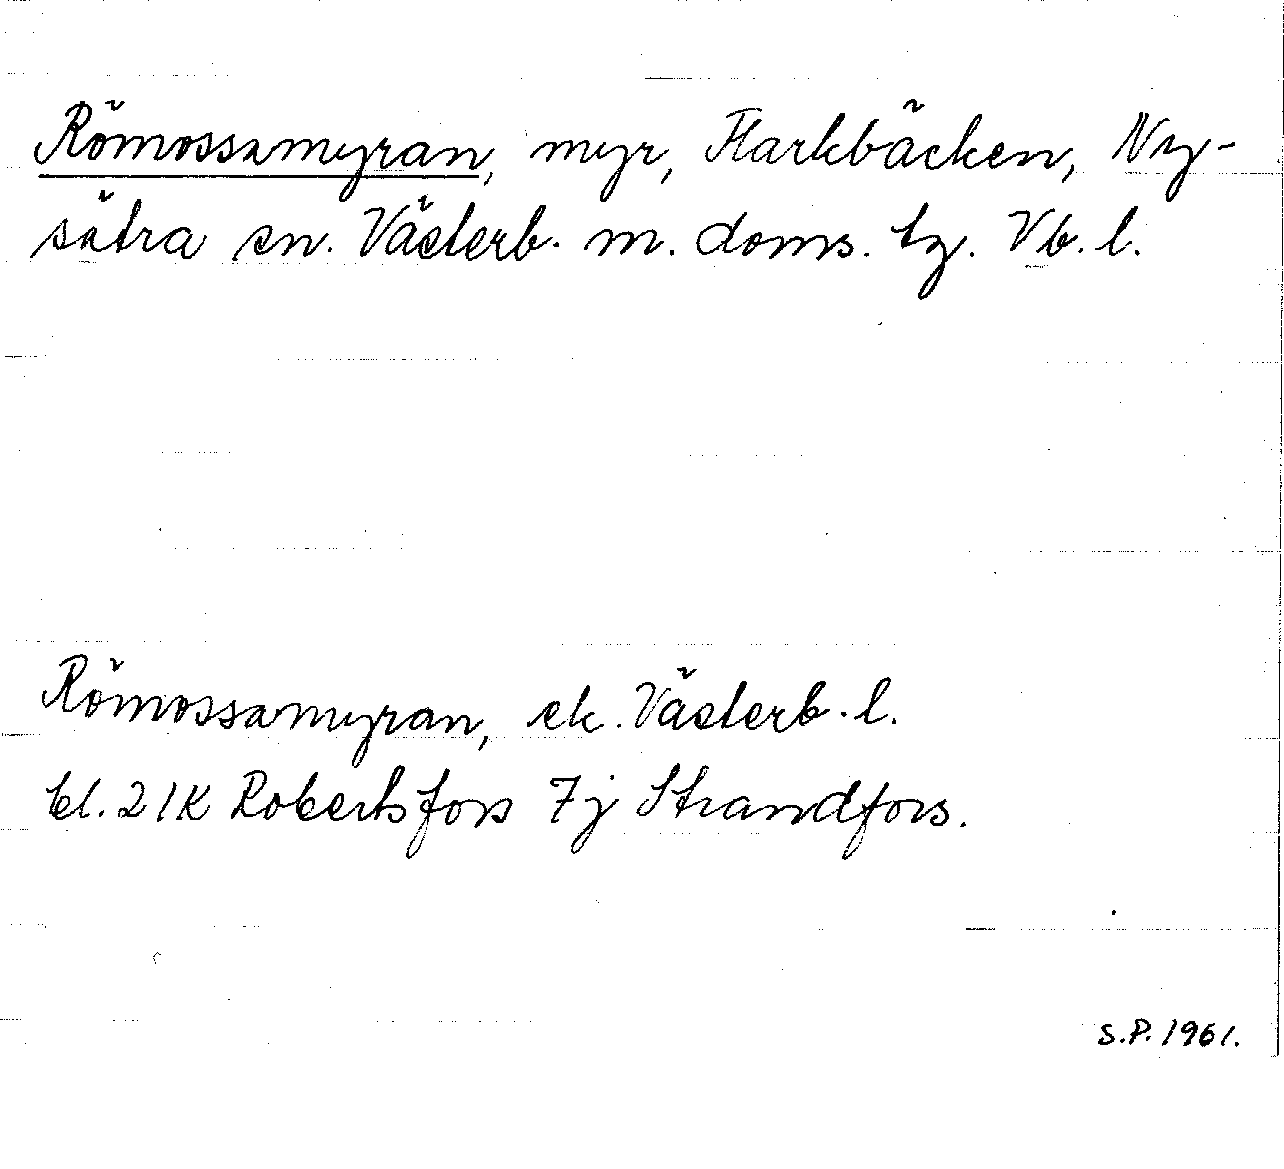 Römossamyran, myr, Flarkbäcken, Ny-
sätra sn. Västerb. m. doms. tg. Vb. l.
Römossamyran, ek. Västerb. l.
bl. 21K Robertsfors 7j Strandfors.
S.P. 1961.